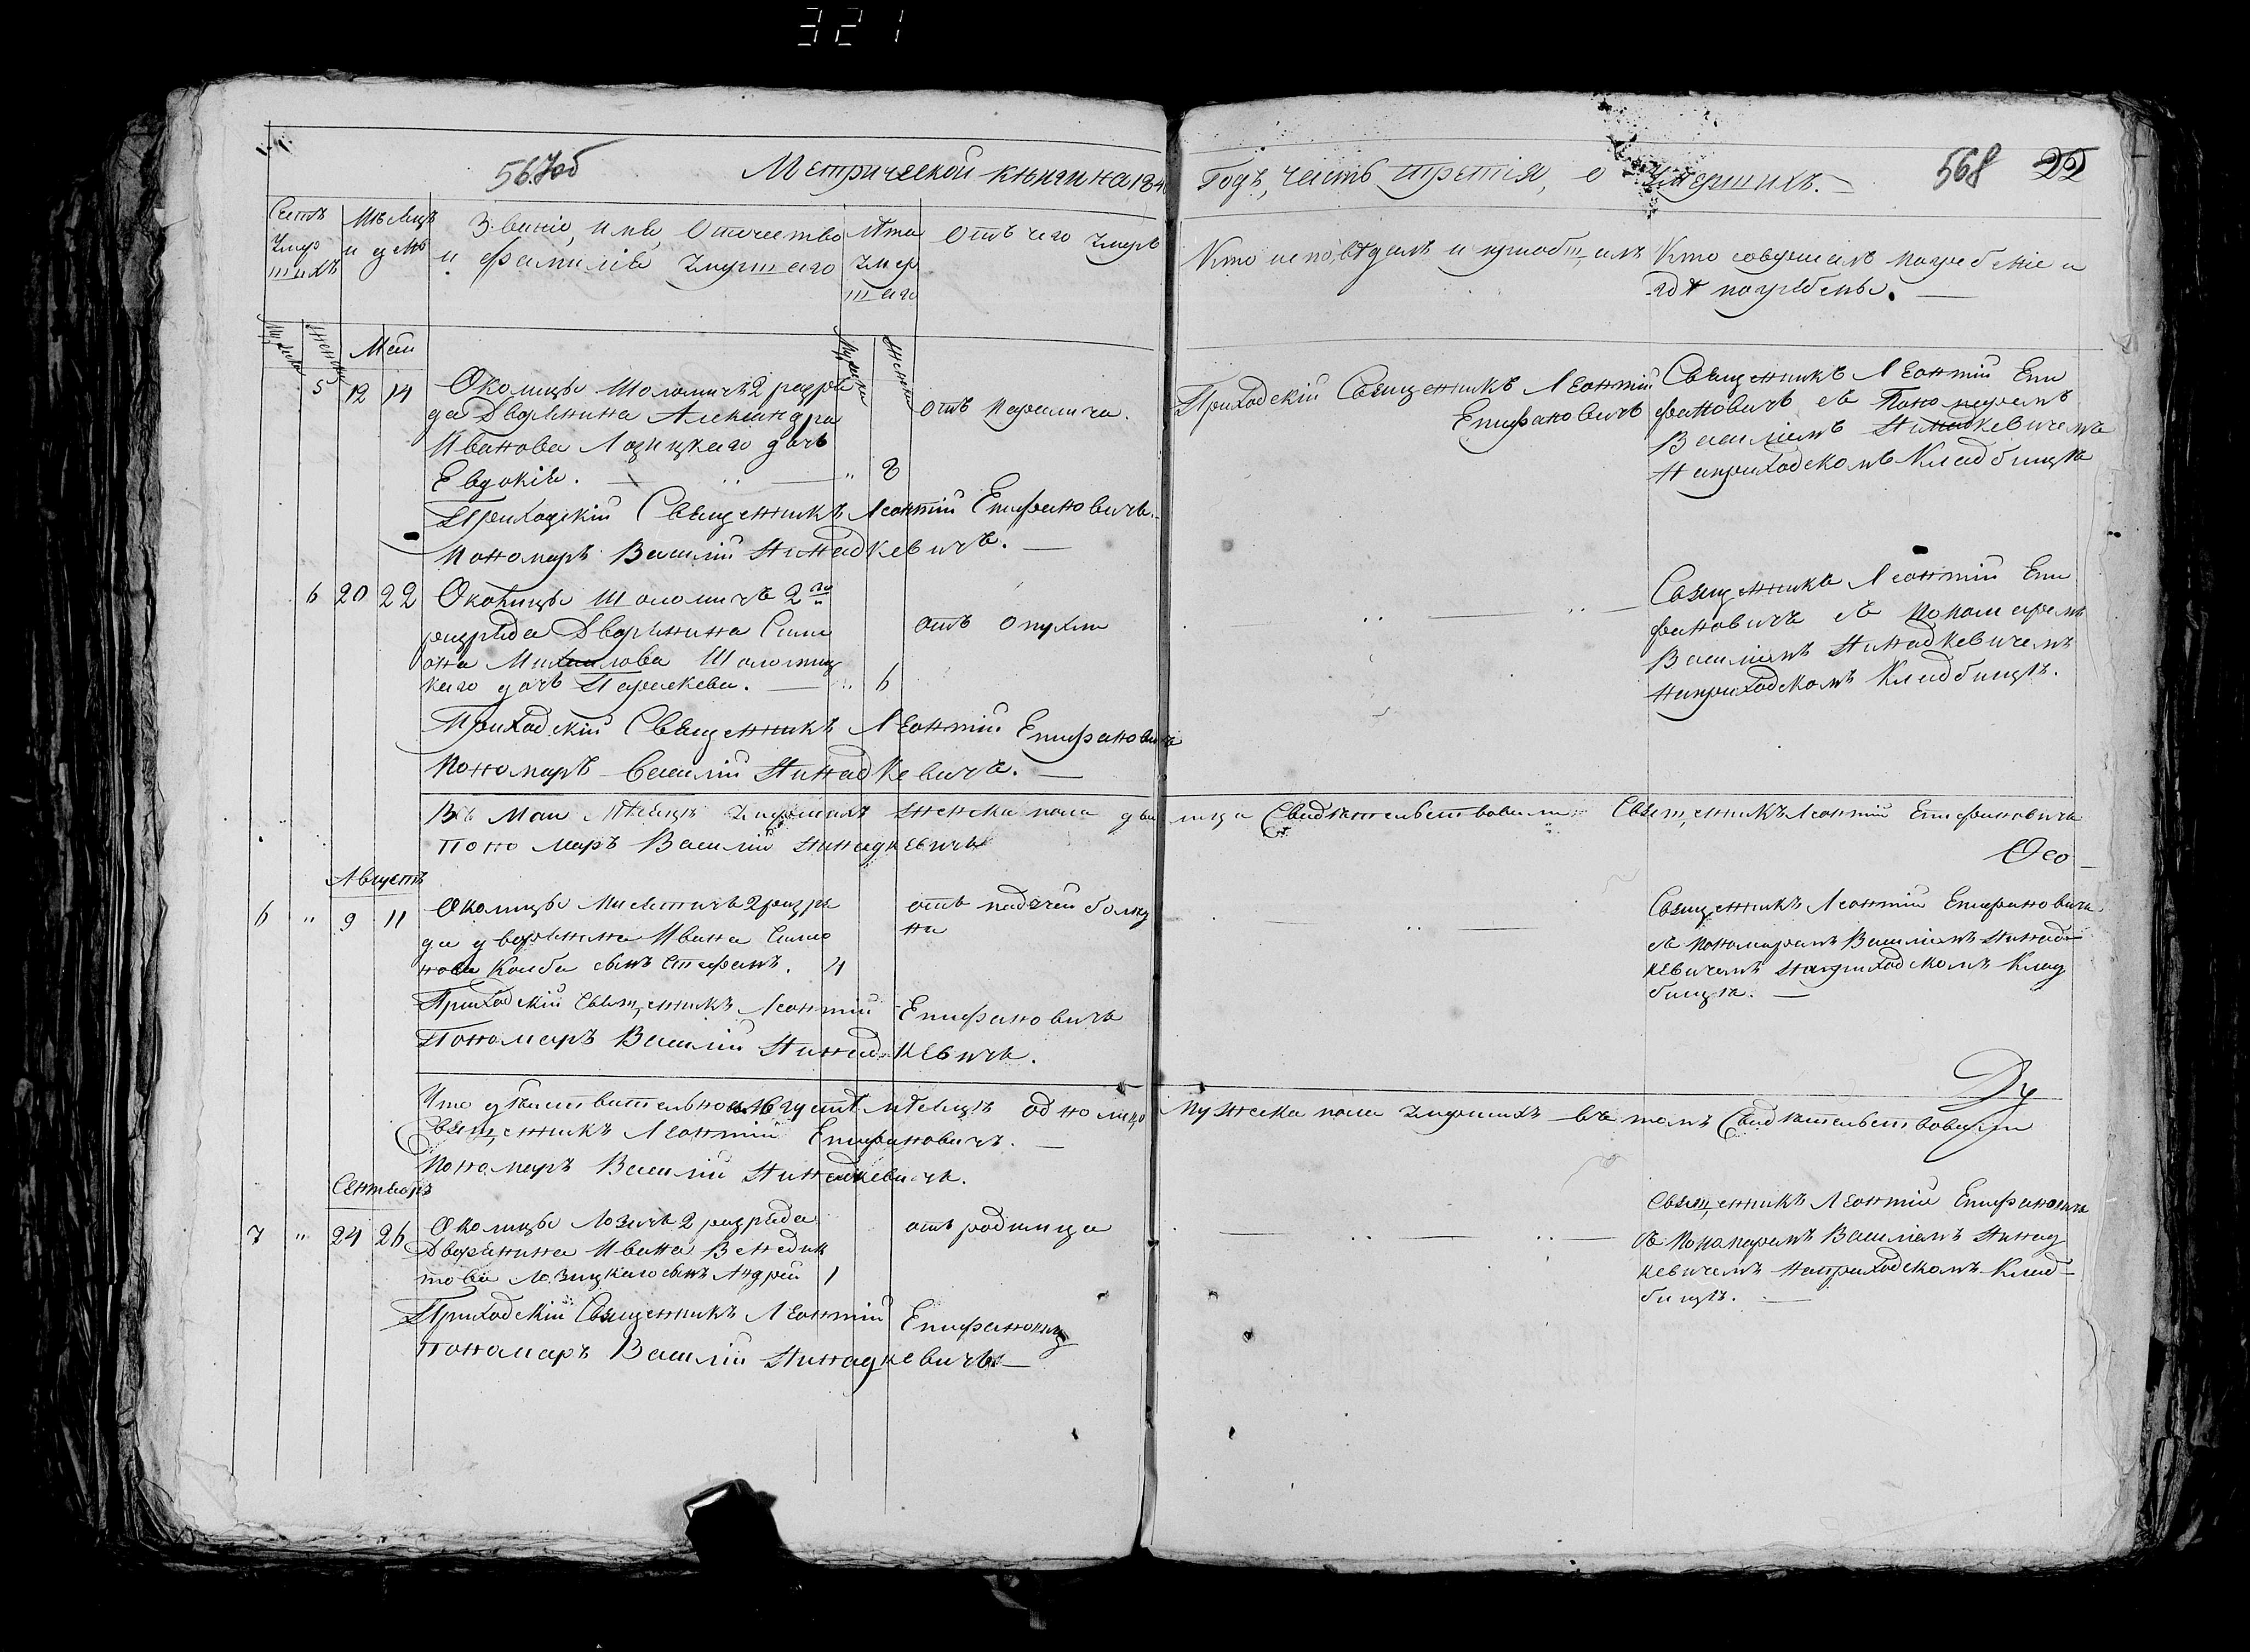 321
567об
Метрической книги на 184
Годъ, часть третiя, о умершихъ.
568 22
Счетъ умершихъ
Мѣсяцъ и день
Званiе, имя, Отчество и фамилiя умершаго
Лѣта умершаго
Отъ чего умеръ
Кто исповѣдалъ и прiобщалъ
Кто совершалъ погребенiе и
гдѣ погребены.
Мужеска
Женска
Маи
Мужеска
Женска
5 12 14
Околицы Шоломичъ 2 разря
да Дворянина Александра
Иванова Лозицкаго дочь
Евдокiя. 8
отъ
Приходскiй Священникъ Леонтiй
Епифановичъ
Священникъ Леонтiй Епи
фановичъ съ Пономаремъ
Василiемъ
Наприходскомъ Кладбищѣ
Приходскiй Священникъ Леонтiй Епифановичъ.
Пономарь Василiй
6 20 22
Околицы Шоломичъ 2го
разряда Дворянина Симе
она Михайлова Шоломиц
каго дочь Параскева. 6
отъ опухли
Священникъ Леонтiй Епи
фановичъ съ Пономаремъ
Василiемъ
Наприходскомъ Кладбищѣ.
Приходскiй Священникъ Леонтiй Епифановичъ
Пономарь Василiй
Въ Маи Мѣсяцѣ умершихъ женска пола два лица Свидѣтельствовали: Священникъ Леонтiй Епифановичъ
Пономарь Василiй
Осо
Августъ
6 " 9 11
Околицы 2 разря
да дворянина Ивана Симо
нова сынъ Стефанъ. 4
отъ падучей болѣз
ни
Священникъ Леонтiй Епифановичъ
съ Пономаремъ Василiемъ
Наприходскомъ Клад
бищѣ.
Приходскiй Священникъ Леонтiй Епифановичъ
Пономарь Василiй
Ду
Что дѣйствительно въ Августѣ мѣсяцѣ одно лицо Мужеска пола умершихъ въ томъ Свидѣтельствовали
Священникъ Леонтiй Епифановичъ.
Пономарь Василiй
Сентябрь
7 " 24 26
Околицы 2 разряда
Дворянина Ивана Венедик
това Лозицкаго сынъ Андрей 1
отъ родимца
Священникъ Леонтiй Епифановичъ
съ Пономаремъ Василiемъ
Наприходскомъ Клад-
бищѣ.
Приходскiй Священникъ Леонтiй Епифановичъ
Пономарь Василiй